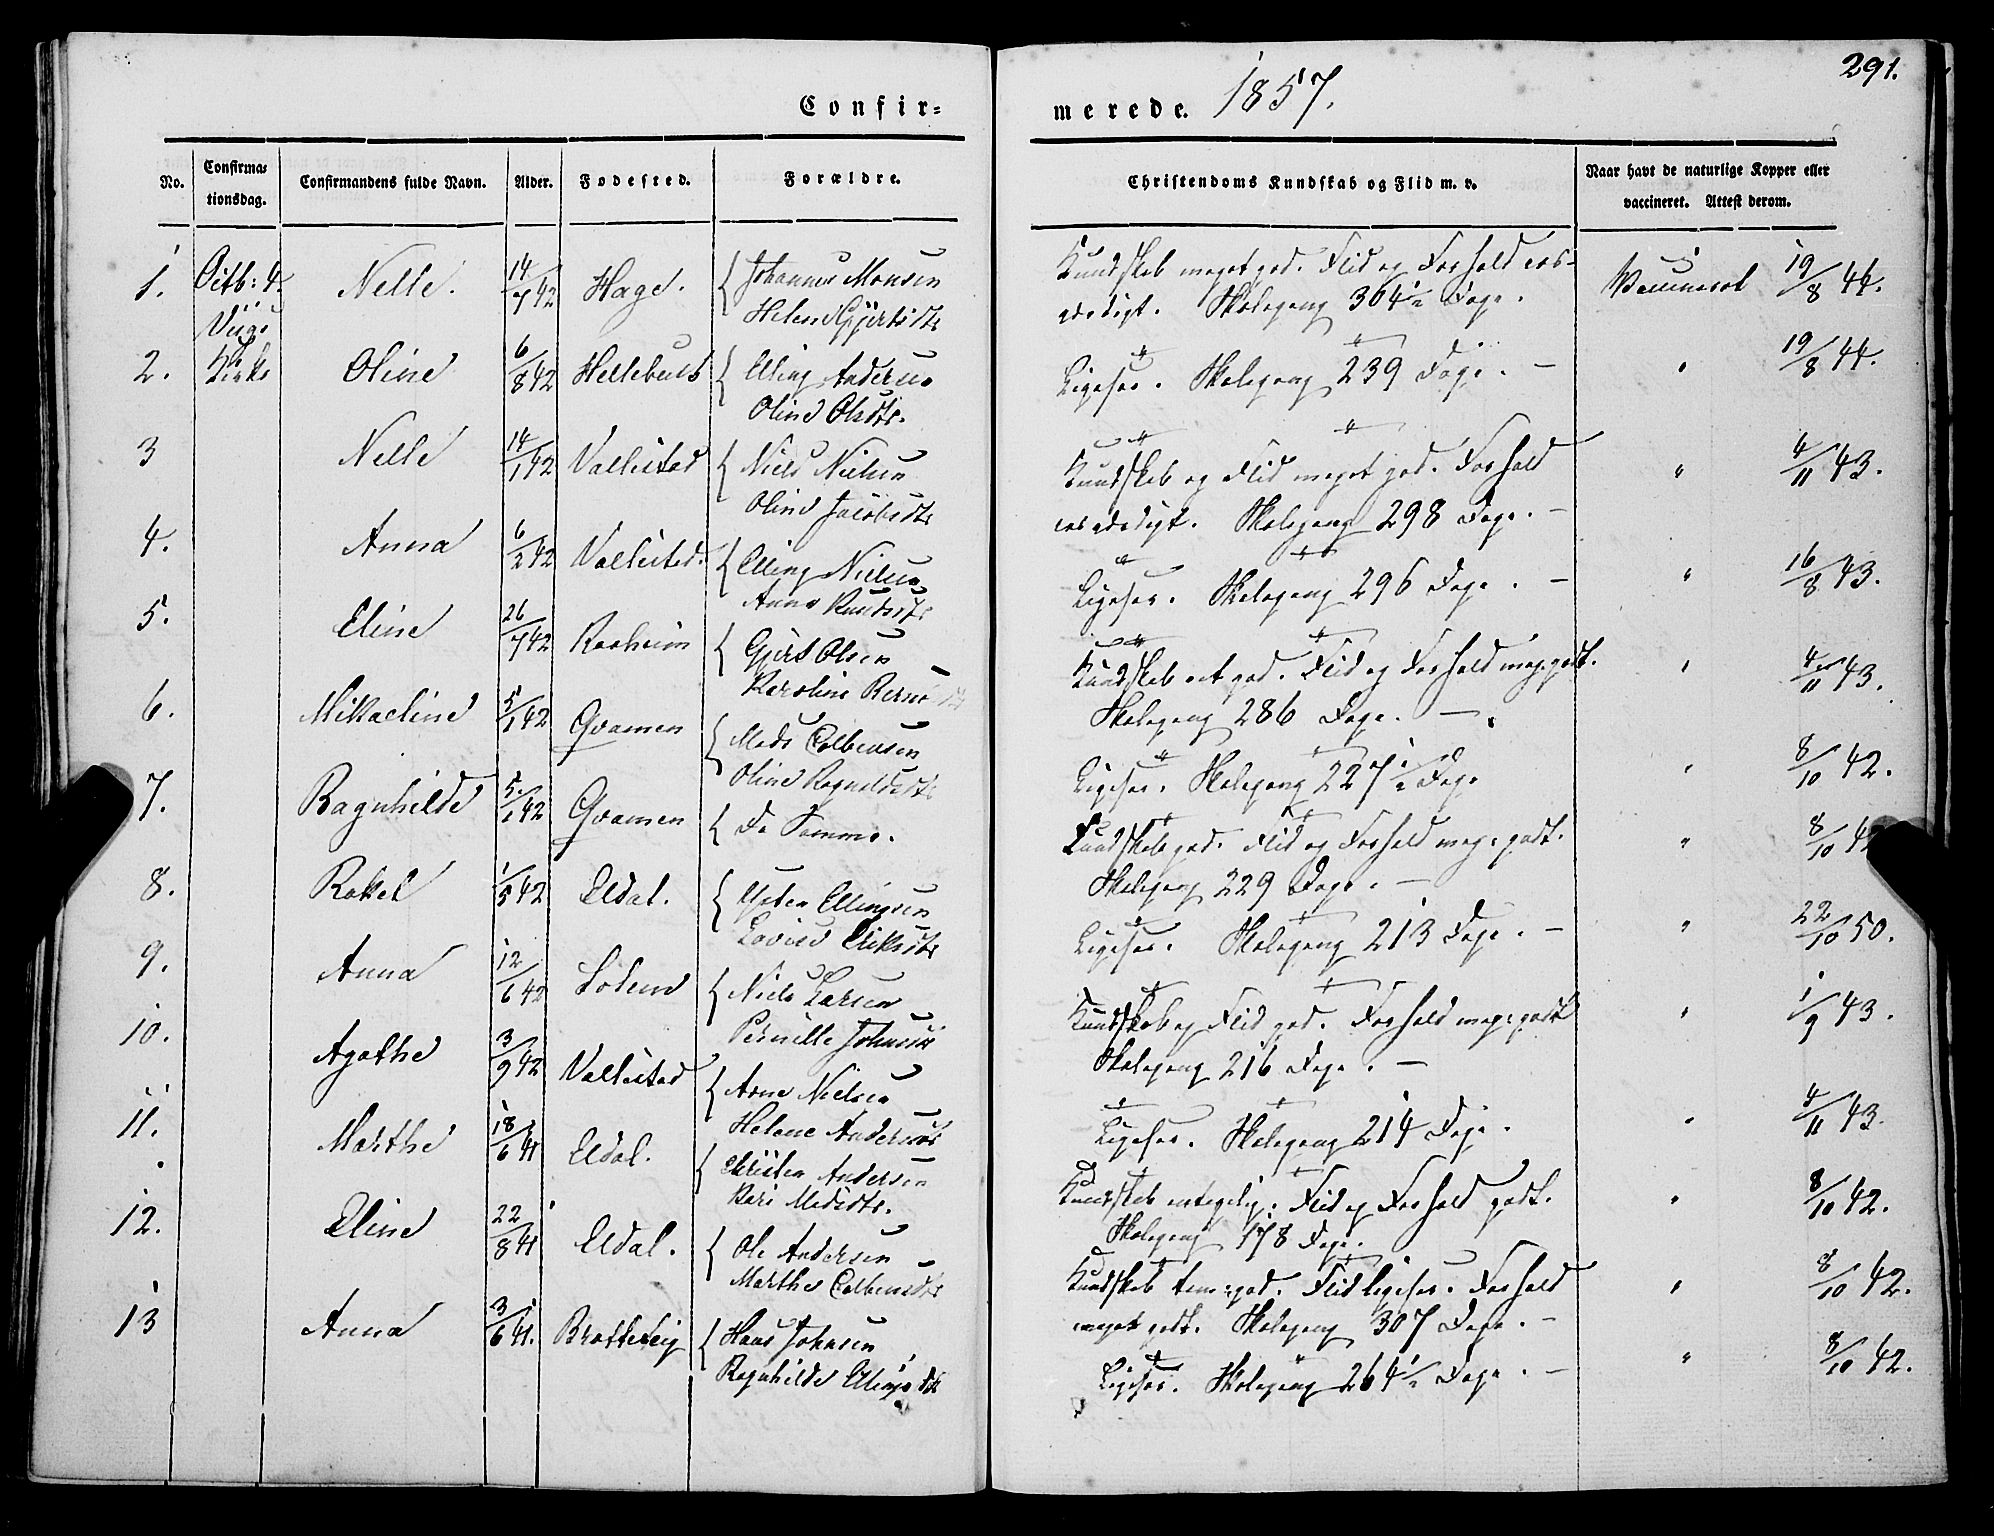 291.
Confir=
merede. 1857.
No.
Confirma=
tionsdag.
Confirmandens fulde Navn.
Alder.
Fødested.
Forældre.
Christendoms Kundskab og Flid m. v.
Naar havt de naturlige Kopper eller
vaccineret. Attest derom.
1. Octb: 4. Nelle. 14/7 42 Hage. { Johannes Monsen
Helene Gjertsdtr
Kundskab meget god. Flid og Forhold ros-
værdigt. Skolegang 304 1/2 Dage.
Vaccineret 19/8 44.
Kirke
2. Oline 6/8 42 Hellebust { Elling Andersen
Oline Olsdtr.
Ligesaa. Skolegang 239 Dage. —
" 19/8 44.
3 Nelle 14/1 42 Vallestad { Niels Nielsen
Oline Jacobsdtr
Kundskab og Flid meget god. Forhold
rosværdigt. Skolegang 298 Dage. —
" 4/11 43.
4. Anna 6/2 42 Vallestad. { Elling Nielsen
Anna Knudsdtr
Ligesaa. Skolegang 296 Dage. —
" 16/8 43.
5. Eline 26/7 42 Raaheim { Gjert Olsen
Karoline
Kundskab god. Flid og Forhold meg: godt.
Skolegang 286 Dage. —
" 4/11 43.
6. Mikaeline 5/1 42 Qvamen { Mads Colbensen
Oline Ragnaldsdtr
Ligesaa. Skolegang 227 1/2 Dage
" 8/10 42.
7. Ragnhilde 5/1 42 Qvamen { De Samme.
Kundskab god. Flid og Forhold meg: godt.
Skolegang 229 Dage. —
" 8/10 42
8. Rakel 1/5 42 Eldal. { Peder Ellingsen
Lovise Eriksdtr
Ligesaa. Skolegang 213 Dage. —
" 22/10 50.
9. Anna 12/6 42 Solem { Niels Larsen
Pernille Johnsdtr
Kundskab og Flid god. Forhold meg: godt
Skolegang 216 Dage. —
" 1/9 43.
10. Agathe 3/9 42 Vallestad { Arne Nielsen
Helene Andersdtr
Ligesaa. Skolegang 214 Dage.
" 4/11 43.
11. Marthe 18/6 41 Eldal. { Christen Andersen
Kari Madsdtr.
Kundskab maadelig. Flid og Forhold godt.
Skolegang 178 Dage.
" 8/10 42.
12. Eline 22/8 41 Eldal. { Ole Andersen
Marthe Colbensdtr
Kundskab tem: god. Flid ligesaa. Forhold
meget godt. Skolegang 307 Dage. —
" 8/10 42.
13 Anna 3/6 41. Bratteteig { Hans Johnsen
Ragnhilde Ellingsdtr
Ligesaa. Skolegang 264 1/2 Dage. —
" 8/10 42.